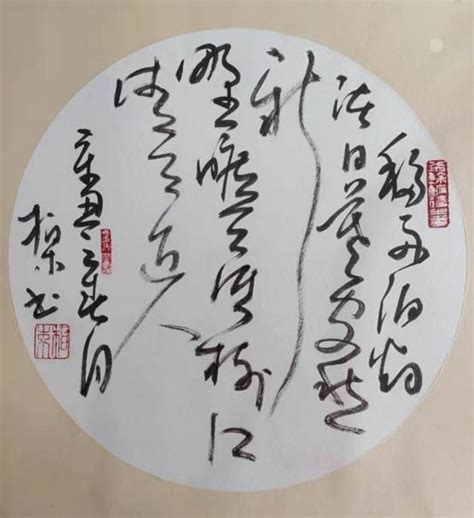 移舟泊烟
渚日暮客愁
新
野旷天低树江
清月近人
辛丑之春月